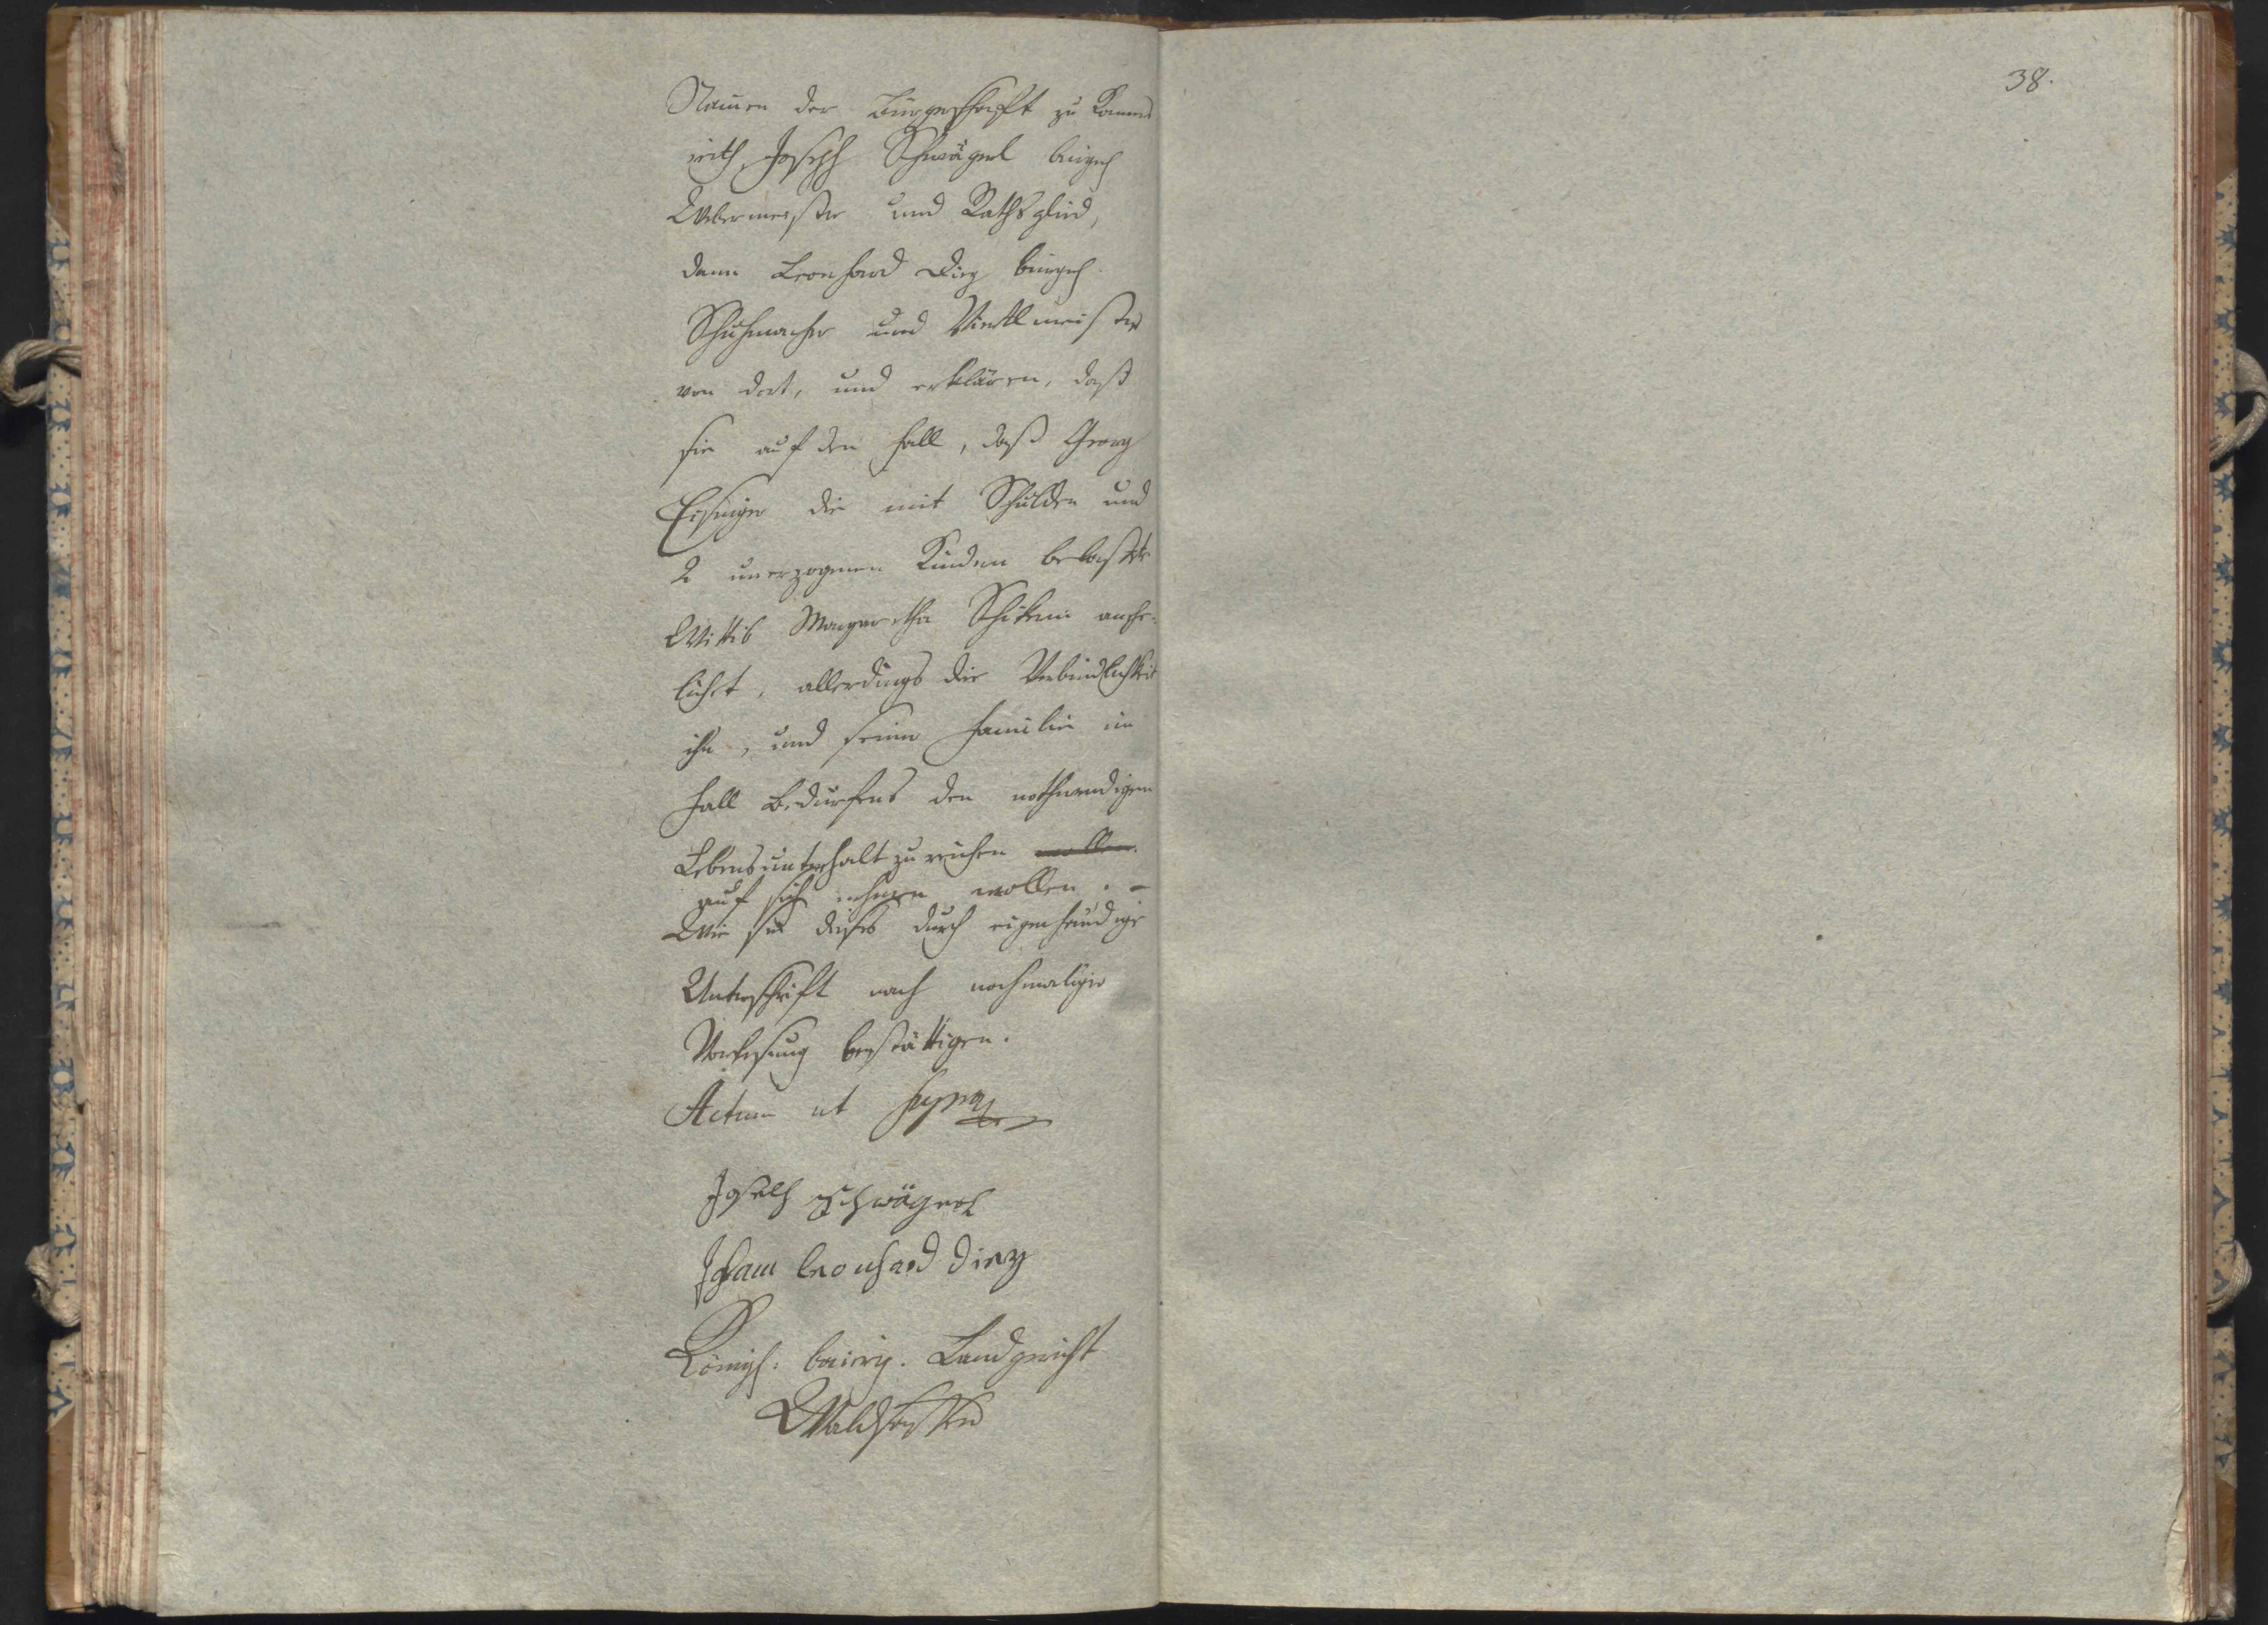 Namen der Bürgerschaft zu Kamme
rieth, Joseph Schwägerl bürgl
Webermeister und Rathsglied,
dann Leonhard Diez bürgl.
Schuhmacher und Viertlmeister
von dort, und erklären, daß
sie auf den Fall, daß Georg
die mit Schulden und
2 unerzogenen Kindern belastete
Wittib Margaretha anehe-
lichet, allerdings die Verbindlichkeit
ihn, und seine Familie im
Fall Bedürfens den nothwendigen
Lebensunterhalt zu reichen wollen.
auf sich nehmen wollen. -
Wie sie dieses durch eigenhändige
Unterschrift nach nochmaliger
Vorlesung bestättigen.
Actum ut supra
Joseph Schwägerl
Johann leonhard Diez
Königl: baierisch. Landgericht
38.